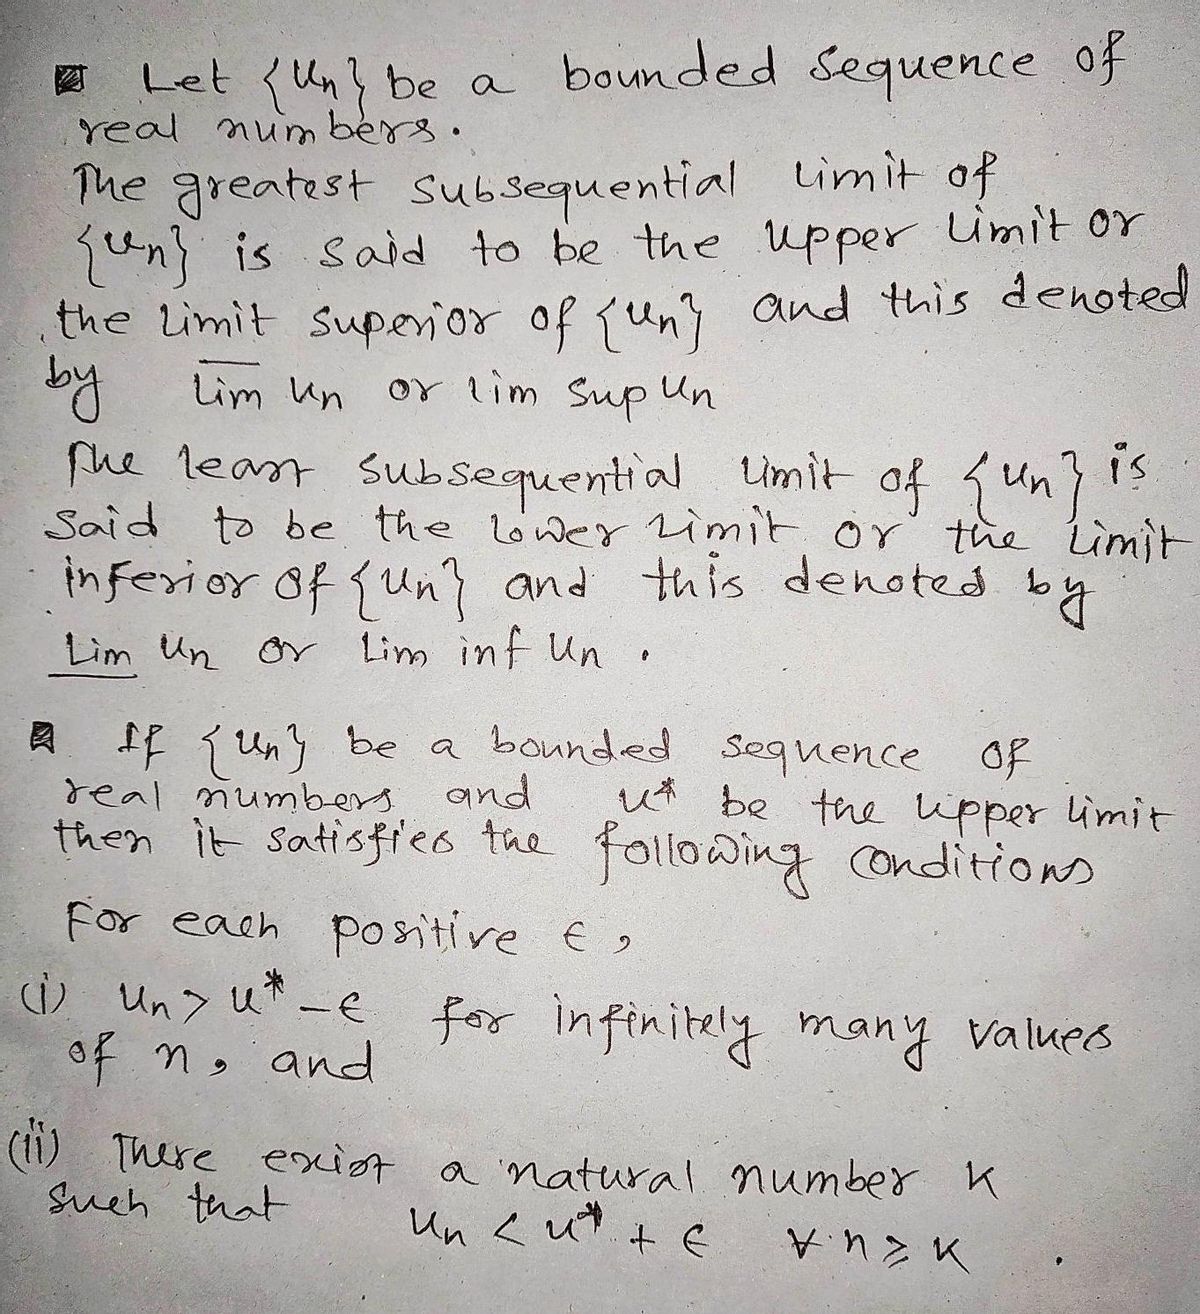 Let {Un} be a bounded sequence of
real numbers.
The greatest subsequential limit of
{un} is said to be the upper limit or
the limit superior of {un} and this denoted
by \overline{lim} un or lim sup un
The least subsequential limit of {un} is
said to be the lower limit or the limit
inferior of {un} and this denoted by
\underline{Lim} un or Lim inf un.
If {un} be a bounded sequence of
real numbers and u* be the upper limit
then it satisfies the following conditions
For each positive ϵ,
(i) un > u* - ϵ for infinitely many values
of n, and
(ii) There exist a natural number K
such that
un < u* + ϵ ∀ n ≥ K.